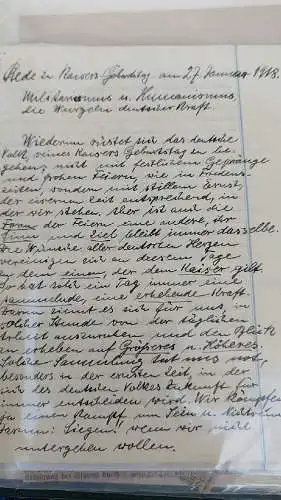 Rede zu Kaisers Geburtstag am 27. Januar 1918.
Militarismus u. Humanismus,
die Wurzeln deutscher Kraft.
Wiederum rüstet sich das deutsche
Volk, seines Kaisers Geburtstag zu be-
gehen, nicht mit festlichem Gepränge
und frohen Feiern, wie in Friedens-
zeiten, sondern mit stillem Ernst,
der eisernen Zeit entsprechend, in
der wir stehen. Aber ist auch die
Form der Feiern eine andere, ihr
Sinn und Ziel bleibt immer dasselbe.
Die Wünsche aller deutschen Herzen
vereinigen sich an diesem Tage
zu dem einen, der dem Kaiser gilt.
So hat solch ein Tag immer eine
sammelnde, eine erhebende Kraft.
Darum ziemt es sich für uns, in
solcher Stunde von der täglichen
Arbeit auszuruhen und den Blick
zu erheben auf Größeres u. Höheres.
Solche Sammlung tut uns not,
besonders in der ernsten Zeit, in der
sich des deutschen Volkes Zukunft für
immer entscheiden wird. Wir kämpfen
ja einen Kampf um Sein u. Nichtsein
darum: Siegen! wenn wir nicht
untergehen wollen.